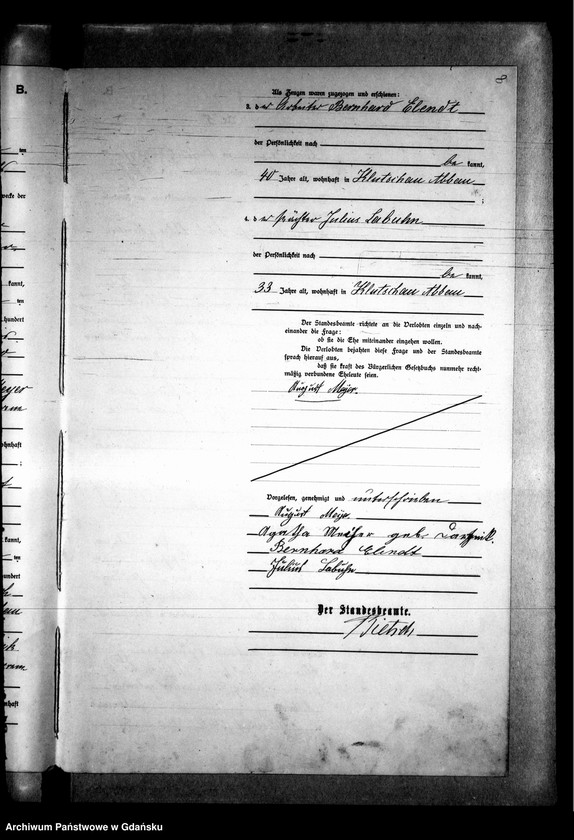 B.
Als Zeugen waren zugezogen und erschienen:
3. der Arbeiter Bernhard Elendt
der Persönlichkeit nach
be kannt,
40 Jahre alt, wohnhaft in Klutschau Abbau
;
4. der Pächter Julius Labuhn
der Persönlichkeit nach
be kannt,
33 Jahre alt, wohnhaft in Klutschau Abbau
Der Standesbeamte richtete an die Verlobten einzeln und nach-
einander die Frage:
ob sie die Ehe miteinander eingehen wollen.
Die Verlobten bejahten diese Frage und der Standesbeamte
sprach hierauf aus,
daß sie kraft des Bürgerlichen Gesetzbuchs nunmehr recht-
mäßig verbundene Eheleute seien.
August Meyer.
Vorgelesen, genehmigt und unterschrieben
August Meyer
Agatha Meyer geb.
Bernhard Elendt
Julius Labuhn
Der Standesbeamte.
Archiwum Państwowe w Gdańsku